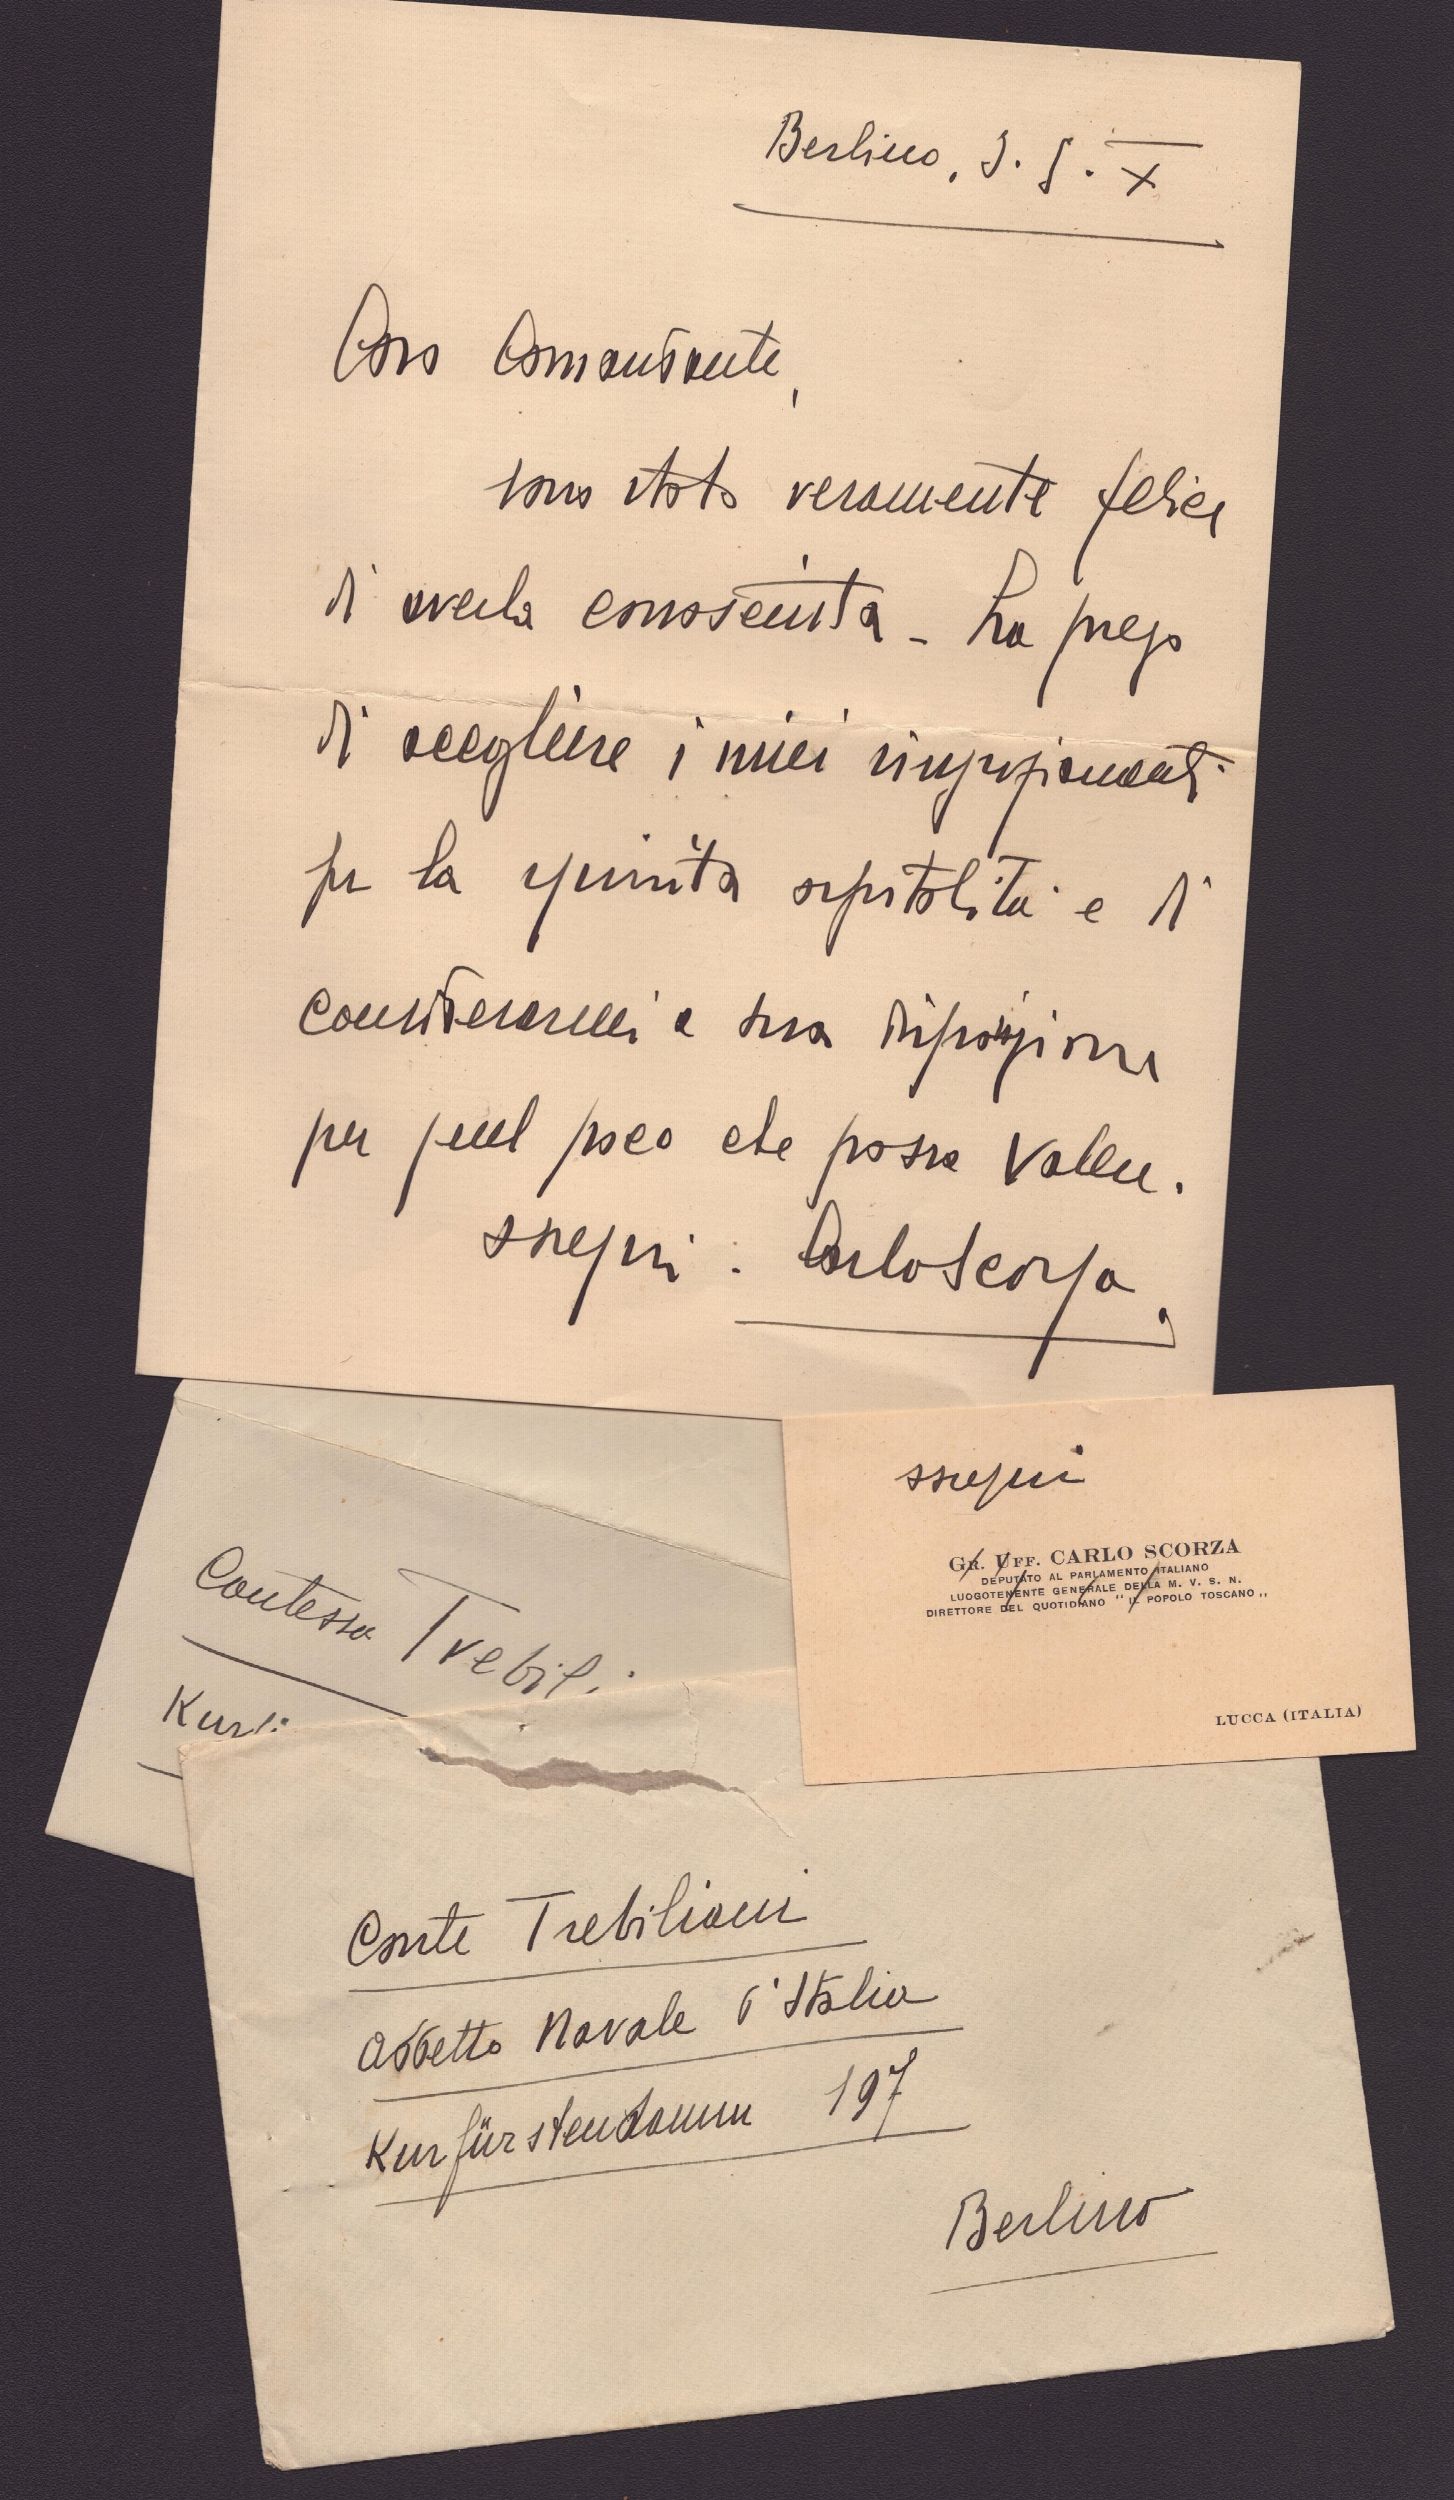 Berlino, 3. 5. X
Caro Comandante,
sono stato veramente felice
di averla conosciuta - La prego
di accogliere i miei ringraziamenti
per la squisita ospitalità e di
considerarmi a sua disposizione
per quel poco che possa valere.
ssequi : Carlo Scorza.
ssequi
GR. UFF. CARLO SCORZA
DEPUTATO AL PARLAMENTO ITALIANO
LUOGOTENENTE GENERALE DELLA M. V. S. N.
DIRETTORE DEL QUOTIDIANO "IL POPOLO TOSCANO"
LUCCA (ITALIA)
Contessa Trebili
Kurf
Conte Trebiliani
Addetto Navale d'Italia
Kurfürstendamm 197
Berlino